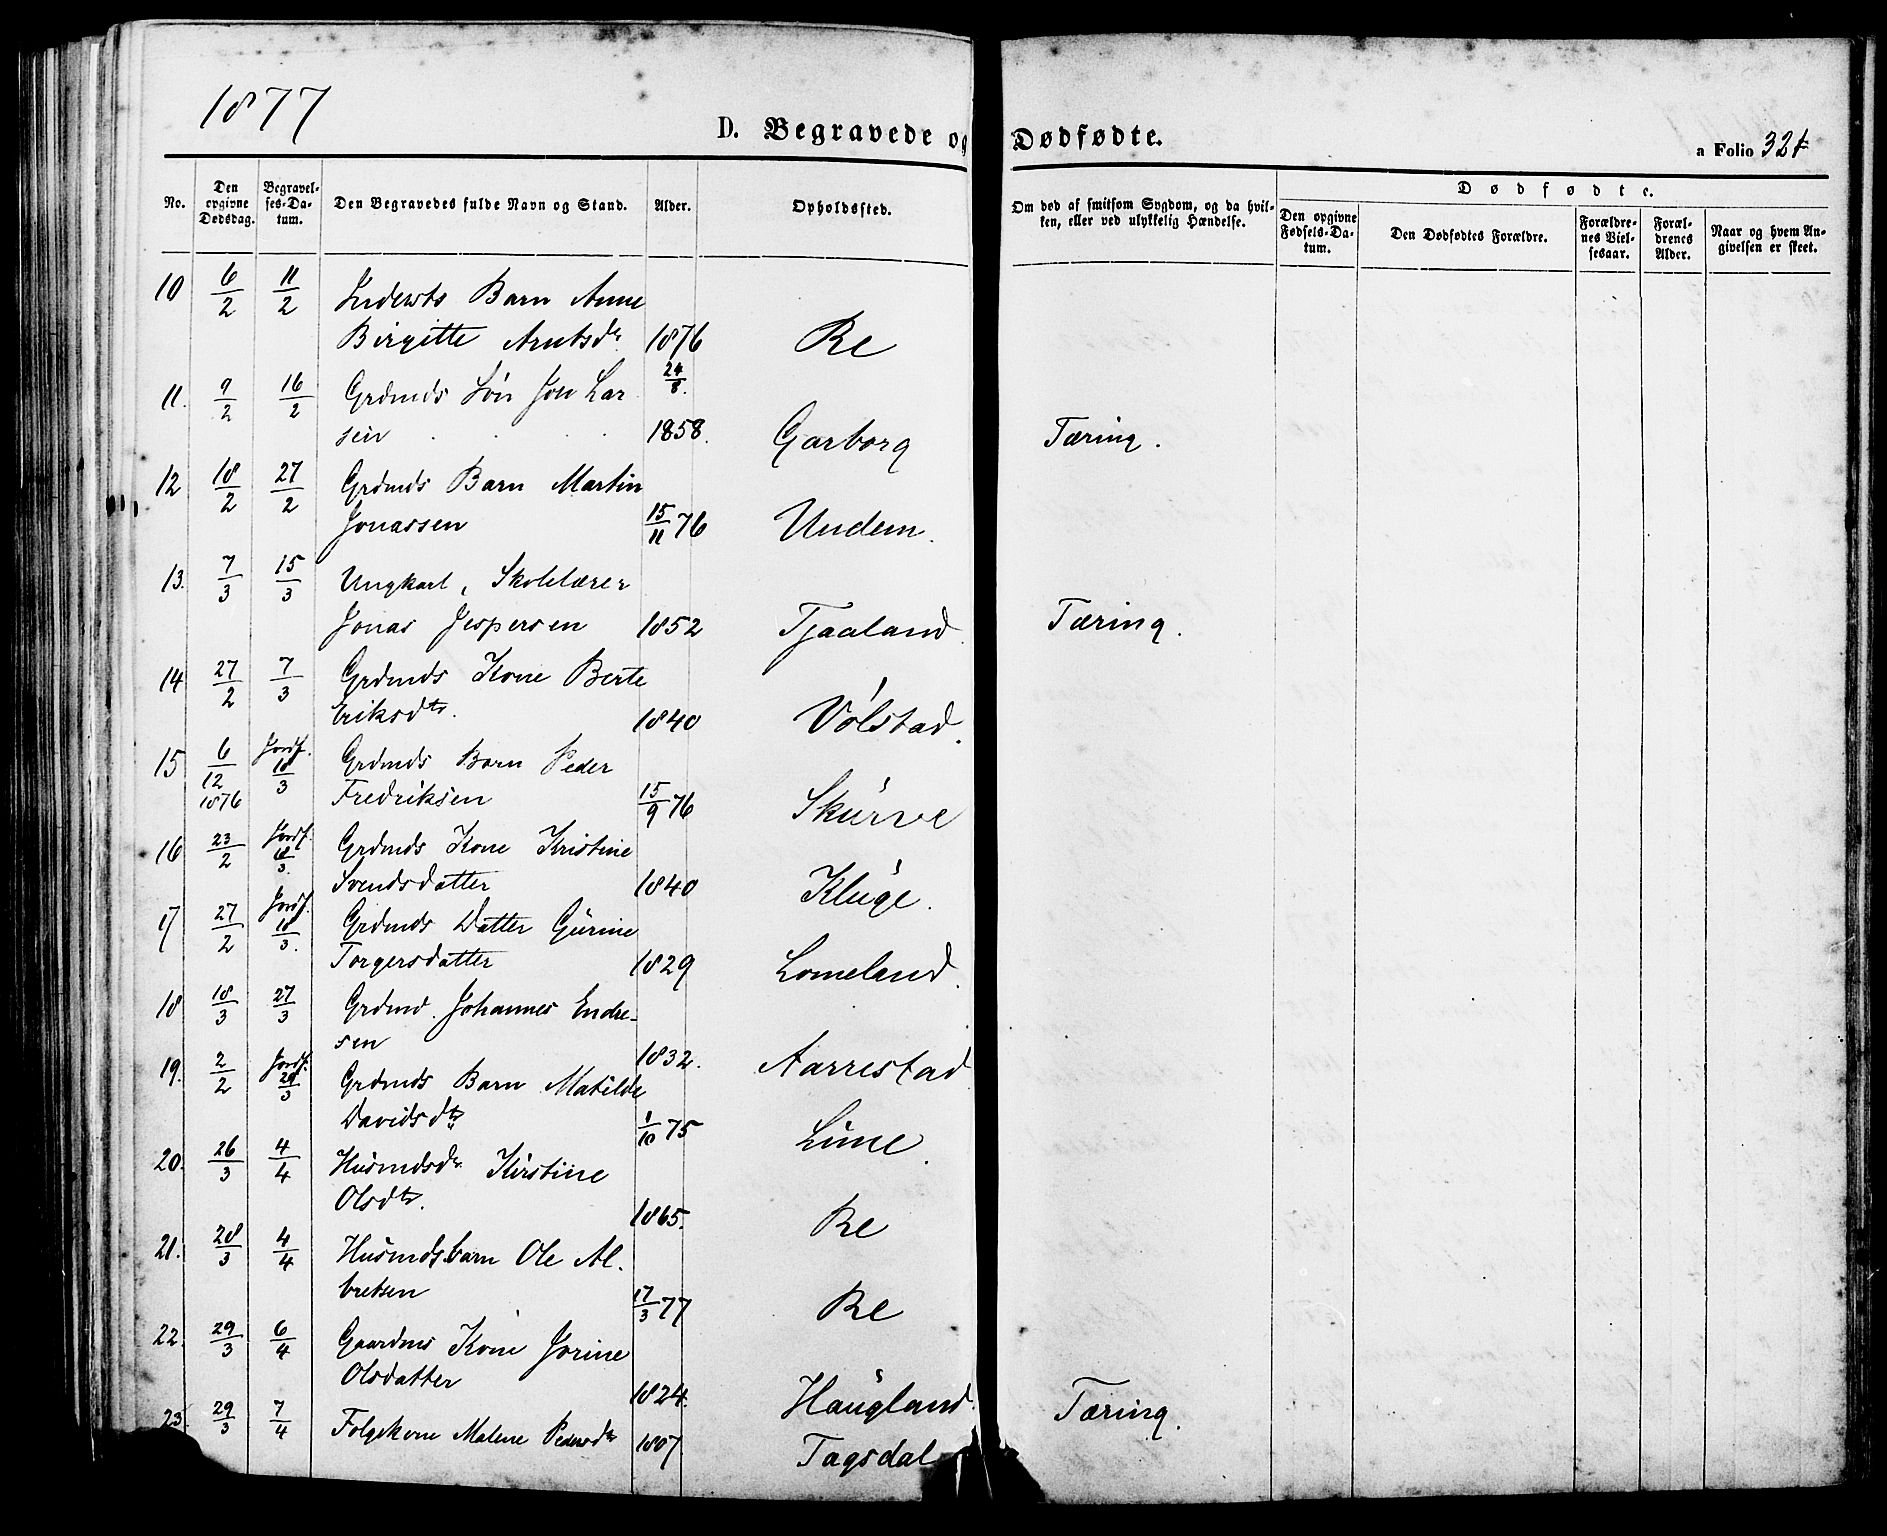 1877
D. Begravede og Dødfødte.
a Folio 321
No.
Den opgivne Dødsdag.
Begravelses-Datum.
Den Begravedes fulde Navn og Stand.
Alder.
Opholdssted.
Om død af smitsom Sygdom, og da hvilken, eller ved ulykkelig Hændelse.
Dødfødte.
Den opgivne Fødsels-Datum.
Den Dødfødtes Forældre.
Forældrenes Vielsesaar.
Forældrenes Alder.
Naar og hvem Angivelsen er skeet.
10 6/2 11/2 Indersts Barn Anne
Birgitte Arntsdr. 1876 24/8. Re
11. 9/2 16/2 Grdmds Søn Jon Lar
sen 1858. Garborg Tæring.
12 18/2 27/2 Grdmds Barn Martin
Jonassen 15/11 76 Undem.
13. 7/3 15/3 Ungkarl, Skolelærer
Jonas Jespersen 1852 Tjaaland. Tæring.
14 27/2 7/3 Grdmds Kone Berte
Eriksdtr. 1840 Vølstad.
15 6/12 1876 Jordf. 18/3 Grdmds Barn Peder
Fredriksen 15/9 76 Skurve
16 23/2 Jordf. 18/3. Grdmds Kone Kristine
Svendsdatter 1840 Kluge.
17 27/2 Jordf. 18/3. Grdmds Datter Gurine
Torgersdatter 1829 Lomeland.
18 18/3 27/3 Grdmd. Johannes Endre-
sen 1832. Aarrestad
19. 2/2 Jordf. 29/3 Grdmds Barn Matilde
Davidsdtr. 1/10 75 Lime.
20. 26/3 4/4 Husmdsdr. Kirstine
Olsdtr. 1865. Re
21. 28/3 4/4 Husmdsbarn Ole Al.
bretsen 17/3 77 Re
22. 29/3 6/4 Gaardms Kone Jorine
Olsdatter 1824. Haugland. Tæring.
23. 29/3 7/4 Folgekone Malene Pedersdtr 1807. Tagsdal